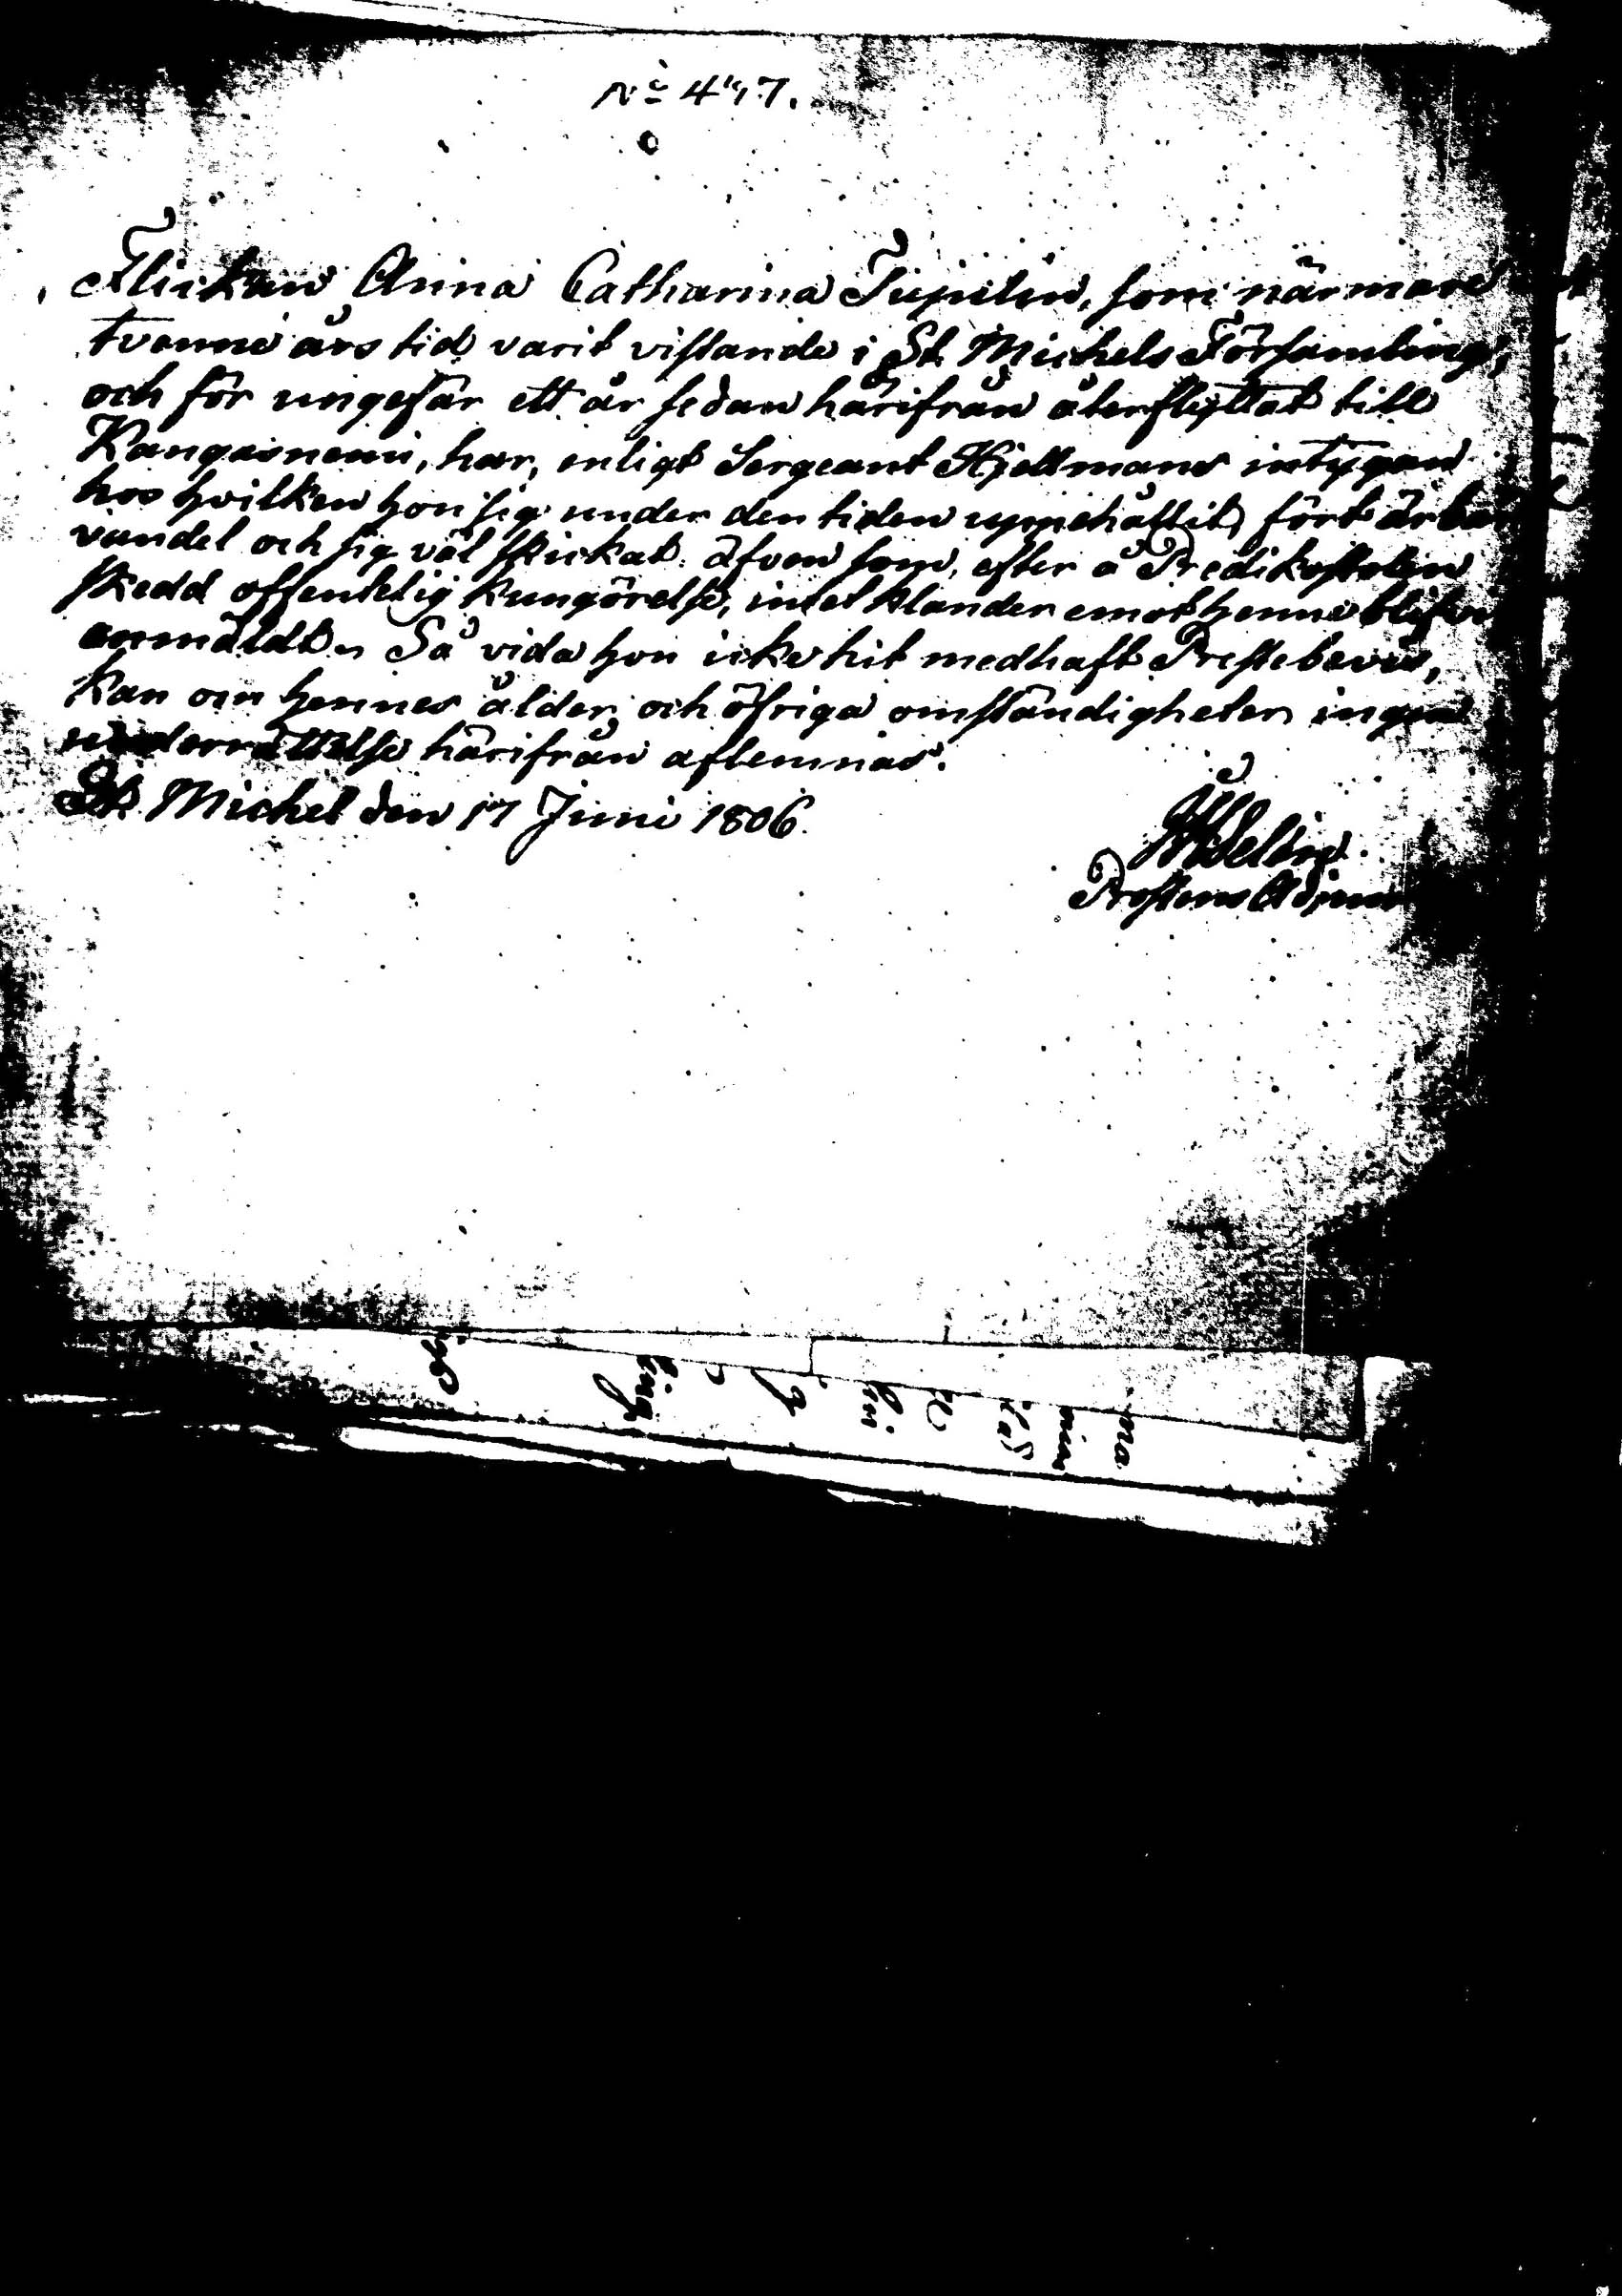 No 447.
Flickan Anna Catharina Tiupelin, som närmare
tvenne års tid varit vistande i St Michels Församling,
och för ungefär ett år sedan härifrån återflyttat till
Kangasniemi, har, enligt Sergeant Hjelmans intygan
hos hvilken hon sig under den tiden uppehållit, fört ärbar
vandel och sig väl skickat. äfven som, efter å Predikostolen
skedd offentelig kungörelse, intet klander emot henne blifvit
anmäldt. Så vida hon icke hit medhaft Prestebevis,
kan om hennes ålder och öfriga omständigheter ingen
underrättelse härifrån aflemnas.
St Michel den 17 Junii 1806.
Prostens Adjunct